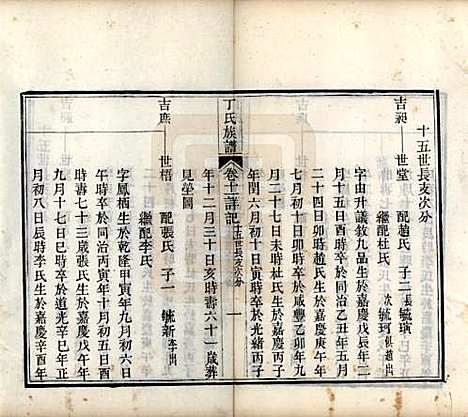 十五世長支次分
吉昶——世堂　配趙氏　子二　長毓璜　次毓珂 俱趙出
繼配杜氏
字由升議敘九品生於嘉慶戊辰年二
月十五日辰時卒於同治乙丑年五月
二十四日卯時趙氏生於嘉慶庚午年
七月初十日戌時卒於咸豐乙卯年九
月二十七日未時杜氏生於嘉慶丙子
年閏六月初十日寅時卒於光緒丙子
丁氏族譜
卷十詳記 十五世長支次分
一
年十二月三十日亥時壽六十一歲葬
見塋圖
吉庶——世悟　配張氏　子一　毓新 李出
繼配李氏
字鳳栖生於乾隆甲寅年九月初六日
午時卒於同治丙寅年十月初五日酉
時壽七十三歲張氏生於嘉慶丁巳年
九月十七日巳時卒於道光辛巳年正
月初八日辰時李氏生於嘉慶辛酉年